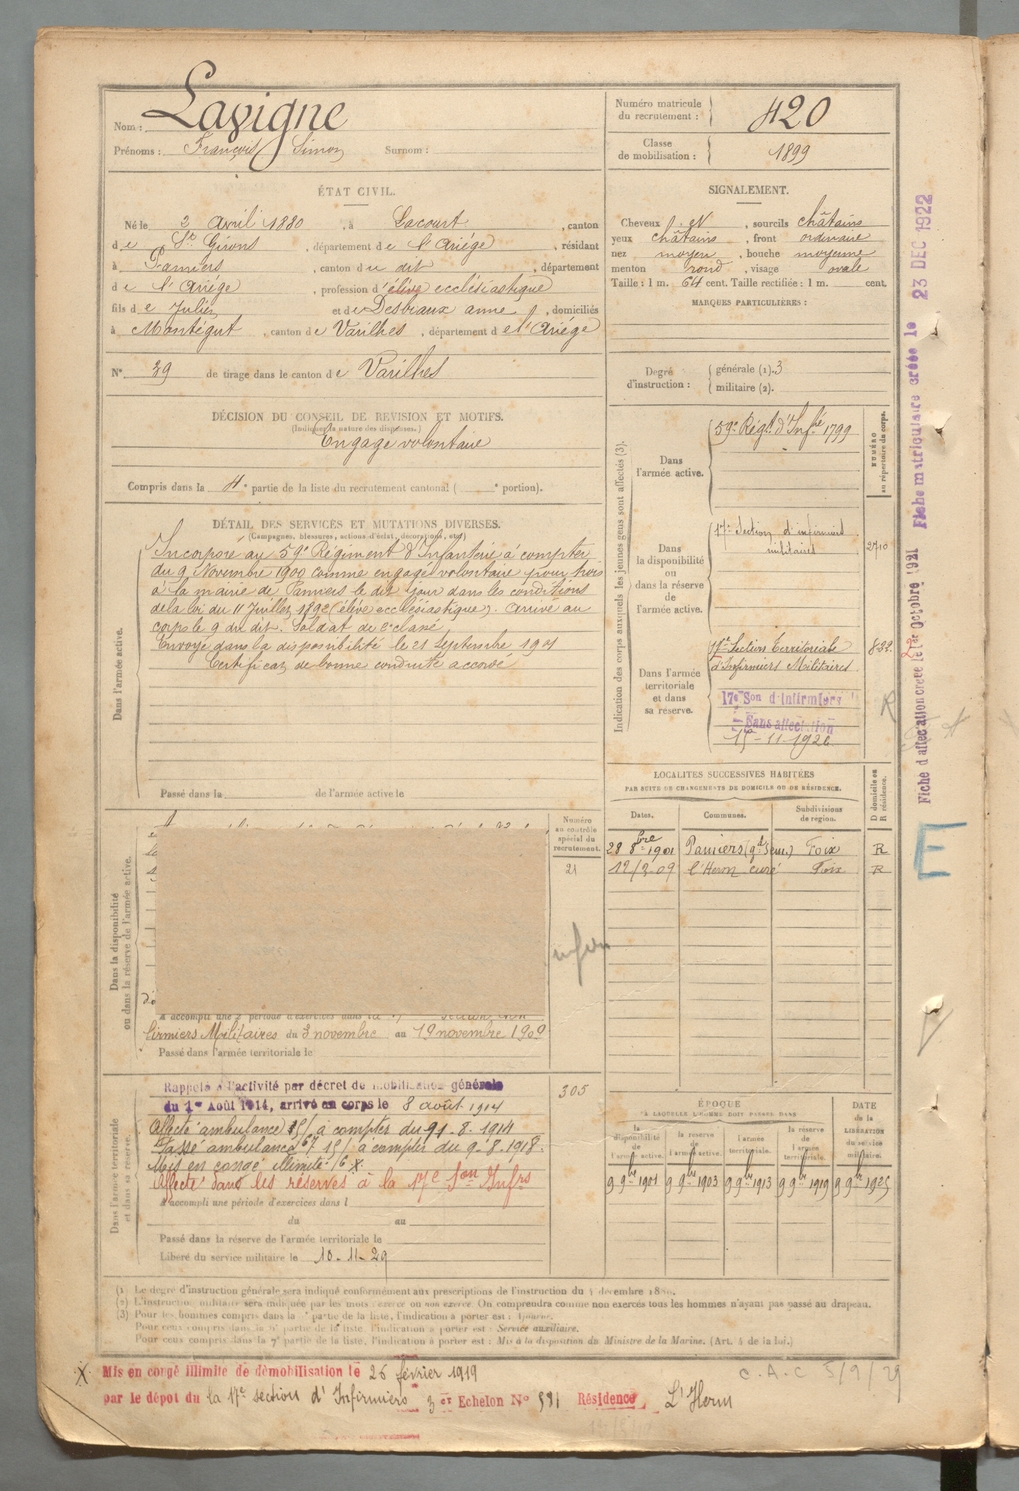 Nom : Lavigne
Prénoms : François Simon Surnom :
Numéro matricule du recrutement : 420
Classe de mobilisation : 1899
ÉTAT CIVIL.
Né le 2 avril 1880, à Lacourt, canton
de St Girons, département de l'Ariége, résidant
à Pamiers, canton du dit, département
de l'Ariége, profession d'élève ecclésiastique
fils de Julien et de Desbiaux anne, domiciliés
à Montégut, canton de Varilhes, département de l'Ariége
N° 39 de tirage dans le canton de Varilhes
DÉCISION DU CONSEIL DE REVISION ET MOTIFS.
(Indiquer la nature des dispenses.)
Engagé volontaire
Compris dans la 4e partie de la liste du recrutement cantonal ( e portion).
SIGNALEMENT.
Cheveux , sourcils châtains
yeux châtains, front ordinaire
nez moyen, bouche moyenne
menton rond, visage ovale
Taille : 1 m. 64 cent. Taille rectifiée : 1 m. cent.
MARQUES PARTICULIÈRES :
Degré d'instruction :
générale (1). 3
militaire (2).
DÉTAIL DES SERVICES ET MUTATIONS DIVERSES.
(Campagnes, blessures, actions d'éclat, décorations, etc.)
Dans l'armée active.
Incorporé au 59e Régiment d'Infanterie à compter
du 9 Novembre 1900 comme engagé volontaire pour trois
à la mairie de Pamiers le dit jour dans les conditions
de la loi du 11 Juillet 1892 (élève ecclésiastique). Arrivé au
corps le 9 du dit. Soldat de 2e classe
Envoyé dans la disponibilité le 21 Septembre 1901
Certificat de bonne conduite accordé
Passé dans la de l'armée active le
Indication des corps auxquels les jeunes gens sont affectés (3).
NUMÉRO au répertoire du corps.
Dans l'armée active.
59e Régt d'Infie 1799
Dans la disponibilité ou dans la réserve de l'armée active.
17e Section d'infirmiers militaires
2710
Dans l'armée territoriale et dans sa réserve.
17e Section territoriale
d'Infirmiers Militaires
832
17e Son d'Infirmiers
Sans affectation
15-11-1926
LOCALITÉS SUCCESSIVES HABITÉES
PAR SUITE DE CHANGEMENTS DE DOMICILE OU DE RÉSIDENCE.
D domicile ou R résidence.
Dates. Communes. Subdivisions de région.
28 8bre 1901 Pamiers (gd Sem.) Foix R
12/3-09 l'Herm curé Foix R
Dans la disponibilité ou dans la réserve de l'armée active.
Numéro au contrôle spécial du recrutement.
21
A accompli une 2e période d'exercices dans la 17e Section d'In
firmiers Militaires du 3 novembre au 19 novembre 1909
Passé dans l'armée territoriale le
Dans l'armée territoriale et dans sa réserve.
305
Rappelé à l'activité par décret de mobilisation générale
du 1er Août 1914, arrivé au corps le 8 août 1914
Affecté ambulance 15/ à compter du 9-8-1914
Passé ambulance 67 15/ à compter du 9-8-1918.
Mis en congé illimité X
Affecté dans les réserves à la 17e Son Infrs
A accompli une période d'exercices dans l
du au
Passé dans la réserve de l'armée territoriale le
Libéré du service militaire le 10-11-29
ÉPOQUE
À LAQUELLE L'HOMME DOIT PASSER DANS
DATE de la LIBÉRATION du service militaire.
la disponibilité de l'armée active. la réserve de l'armée active. l'armée territoriale. la réserve de l'armée territoriale.
9 9bre 1901 9 9bre 1903 9 9bre 1913 9 9bre 1919 9 9bre 1925
(1) Le degré d'instruction générale sera indiqué conformément aux prescriptions de l'instruction du 4 décembre 1889.
(2) L'instruction militaire sera indiquée par les mots : exercé ou non exercé. On comprendra comme non exercés tous les hommes n'ayant pas passé au drapeau.
(3) Pour les hommes compris dans la partie de la liste, l'indication à porter est : Ajourné.
Pour ceux compris dans la partie de la liste, l'indication à porter est : Service auxiliaire.
Pour ceux compris dans la 7e partie de la liste, l'indication à porter est : Mis à la disposition du Ministre de la Marine. (Art. 4 de la loi.)
X Mis en congé illimité de démobilisation le 26 février 1919
par le dépôt du la 17e section d'Infirmiers 3 er Echelon N° 531 Résidence L'Herm
C.A.C 5/9/29
Fiche d'affectation créée le 1er Octobre 1921
Fiche matriculaire créée le 23 DEC 1922
R
E